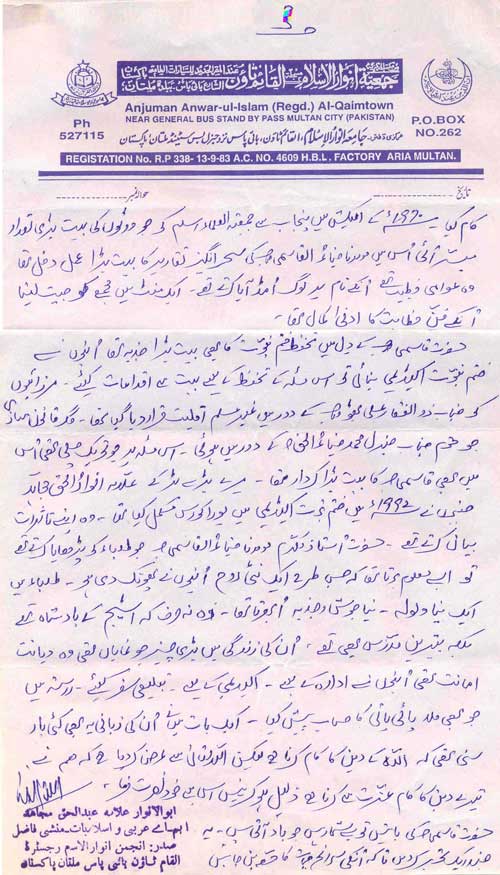 جمعیۃ انوار الاسلام القائم ٹاؤن
Anjuman Anwar-ul-Islam (Regd.) Al-Qaimtown
NEAR GENERAL BUS STAND BY PASS MULTAN CITY (PAKISTAN)
Ph
527115
P.O.BOX
NO.262
جامعہ انوار الاسلام، القائم ٹاؤن، بائی پاس نزد جنرل بس سٹینڈ ملتان پاکستان
REGISTATION No. R.P 338- 13-9-83 A.C. NO. 4609 H.B.L. FACTORY ARIA MULTAN.
حوالہ نمبر تاریخ
کام کیا ۔ 1970ء کے الیکشن میں پنجاب سے جمعیۃ العلماء اسلام کی جو ووٹوں کی بہت بڑی تعداد
میسر آئی اُس میں مولانا ضیاء القاسمی کی سحر انگیز تقاریر کا بہت بڑا عمل دخل تھا
وہ عوامی خطیب تھے اُنکے نام پر لوگ اُمڈ آیا کرتے تھے ۔ ایک منٹ میں مجمع کو جیت لینا
اُنکے فنِ خطابت کا ادنیٰ کمال تھا۔
حضرت قاسمی کے دل میں تحفظ ختم نبوت کا بھی بہت بڑا جذبہ تھا اُنہوں نے
ختم نبوت اکیڈیمی بنائی تو اس مسئلہ کے تحفظ کے لیے بہت سے اقدامات کیئے ۔ مرزائیوں
کو جناب ذوالفقار علی بھٹو کے دور میں غیر مسلم اقلیت قرار دیا گیا تھا۔ مگر قانون سازی
جو جناب جنرل محمد ضیاء الحق کے دور میں ہوئی ۔ اس مسئلہ پر جو تحریک چلی تھی اُس
میں بھی قاسمی کا بہت بڑا کردار تھا ۔ میرے بڑے بڑکے علامہ انوار الحق مجاہد
جنہوں نے 1992ء میں ختم نبوت اکیڈیمی میں پورا کورس مکمل کیا تھا ۔ وہ اپنے تاثرات
بیان کرتے تھے ۔ حضرت استاذ مکرم مولانا ضیاء القاسمی جو طلباء کو پڑھایا کرتے تھے
تو ایسے معلوم ہوتا تھا کہ جس طرح ایک نئی روح اُنہوں نے پھونک دی ہو ۔ طلباء میں
ایک نیا ولولہ ۔ نیا جوش و جذبہ اُبھرتا تھا ۔ وہ نہ صرف کہ اسٹیج کے بادشاہ تھے
بلکہ بہترین مدرس بھی تھے ۔ اُن کی زندگی میں بڑی چیز جو نمایاں تھی وہ دیانت
امانت تھی اُنہوں نے ادارہ کے لیے ۔ اکیڈیمی کے لیے ۔ تبلیغی سفر کیئے ۔ راستہ میں
جو بھی ملا پائی پائی کا حساب پیش کیا ۔ ایک بات میں نے اُن کی زبانی یہ بھی کئی بار
سنی تھی کہ اللہ کے دین کا کام کرنا ہے لیکن اللہ تعالیٰ سے عرض کر دیا ہے کہ ہم نے
تیرے دین کا کام عزت سے کرنا ہے ذلیل ہو کر نہیں اس لیے
حضرت قاسمی کی باتیں تو بے شمار ہیں جو یاد آتی ہیں ۔ یہ
چند تحریر کر دیں تاکہ اُنکی سوانح حیات کا حصہ بن جائیں
ابوالانوار علامہ عبدالحق مجاہد
ایم اے عربی و اسلامیات۔منشی فاضل
صدر: انجمن انوار الاسلام رجسٹرڈ
القائم ٹاؤن بائی پاس ملتان پاکستان